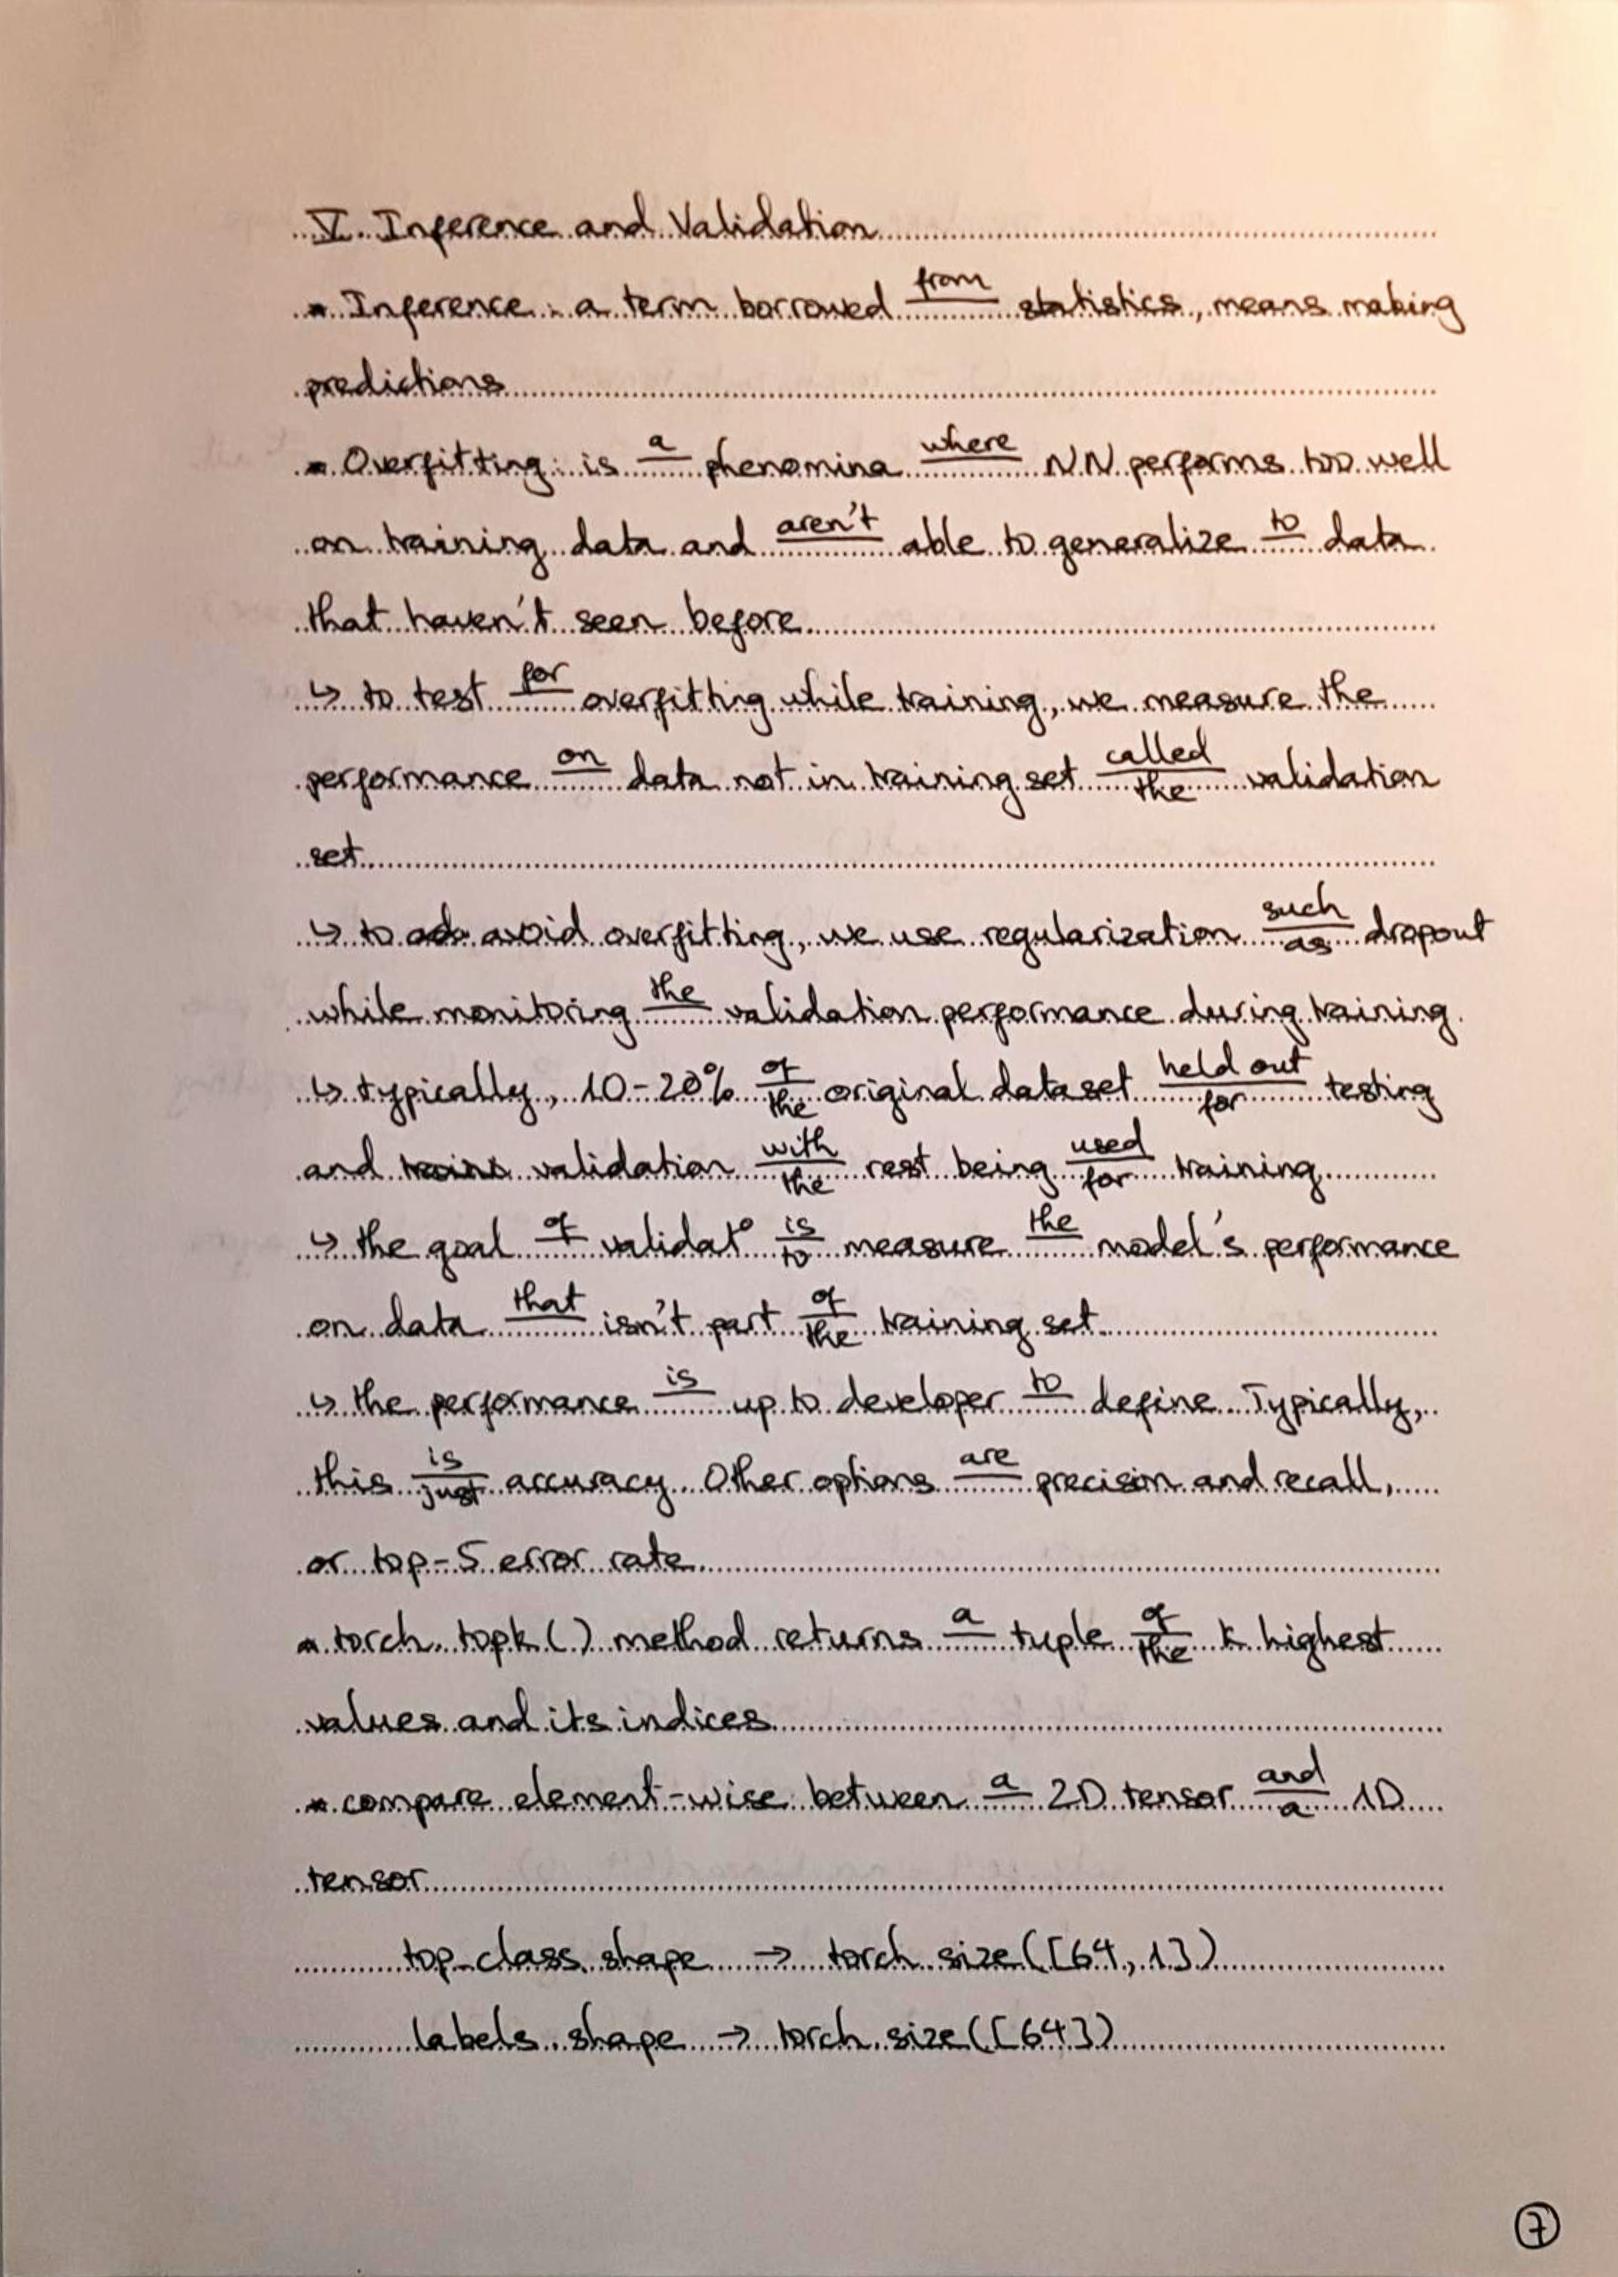 V. Inference and Validation
* Inference : a term borrowed from statistics, means making
predictions
* Overfitting : is a phenomina where NN performs too well
on training data and aren't able to generalize to data
that haven't seen before
↳ to test for overfitting while training, we measure the
performance on data not in training set called the validation
set
↳ to avoid overfitting, we use regularization such as dropout
while monitoring the validation performance during training.
↳ typically, 10-20% of the original dataset held out for testing
and validation with the rest being used for training
↳ the goal of validat° is to measure the model's performance
on data that isn't part of the training set
↳ the performance is up to developer to define. Typically,
this is just accuracy. Other options are precision and recall,
or top-5 error rate.
* torch.topk(.) method returns a tuple of the k highest
values and its indices
* compare element-wise between a 2D tensor and a 1D
tensor
top_class.shape → torch.size([64, 1])
labels.shape → torch.size([64])
7